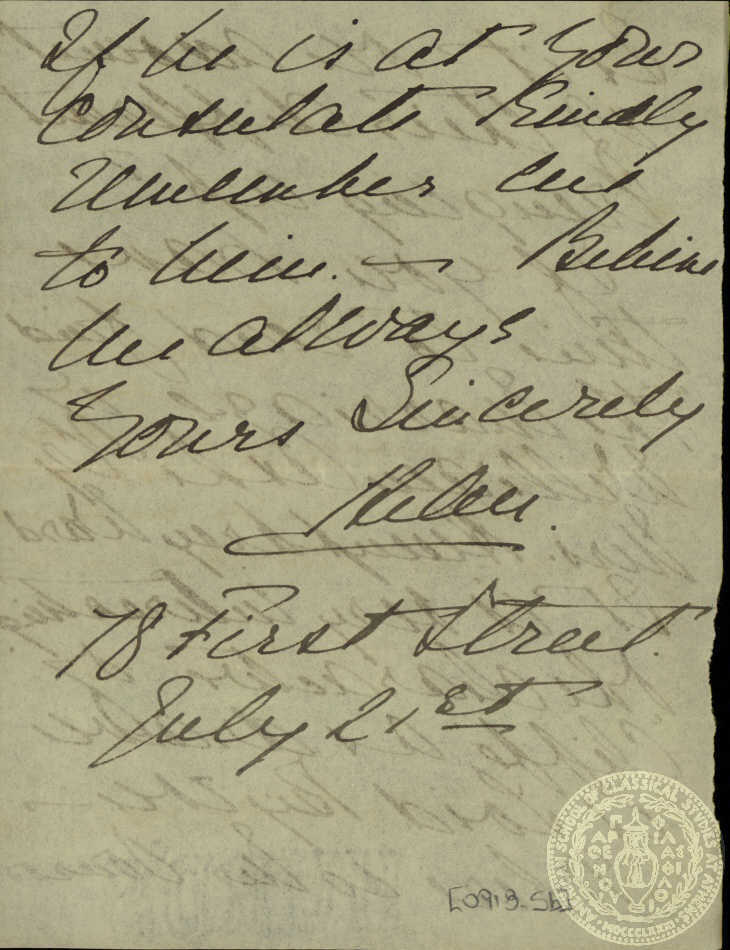 If he is at your
Consulate Kindly
remember me
to him. — Believe
me always
Yours Sincerely
Helen.
78 First Street.
July 21st
[0913-5b]
AMERICAN SCHOOL OF CLASSICAL STUDIES AT ATHENS
ΠΑΡΘΕΝΟΥ ΦΙΛΑΣ ΦΙΛΟΙ
MDCCCLXXXI